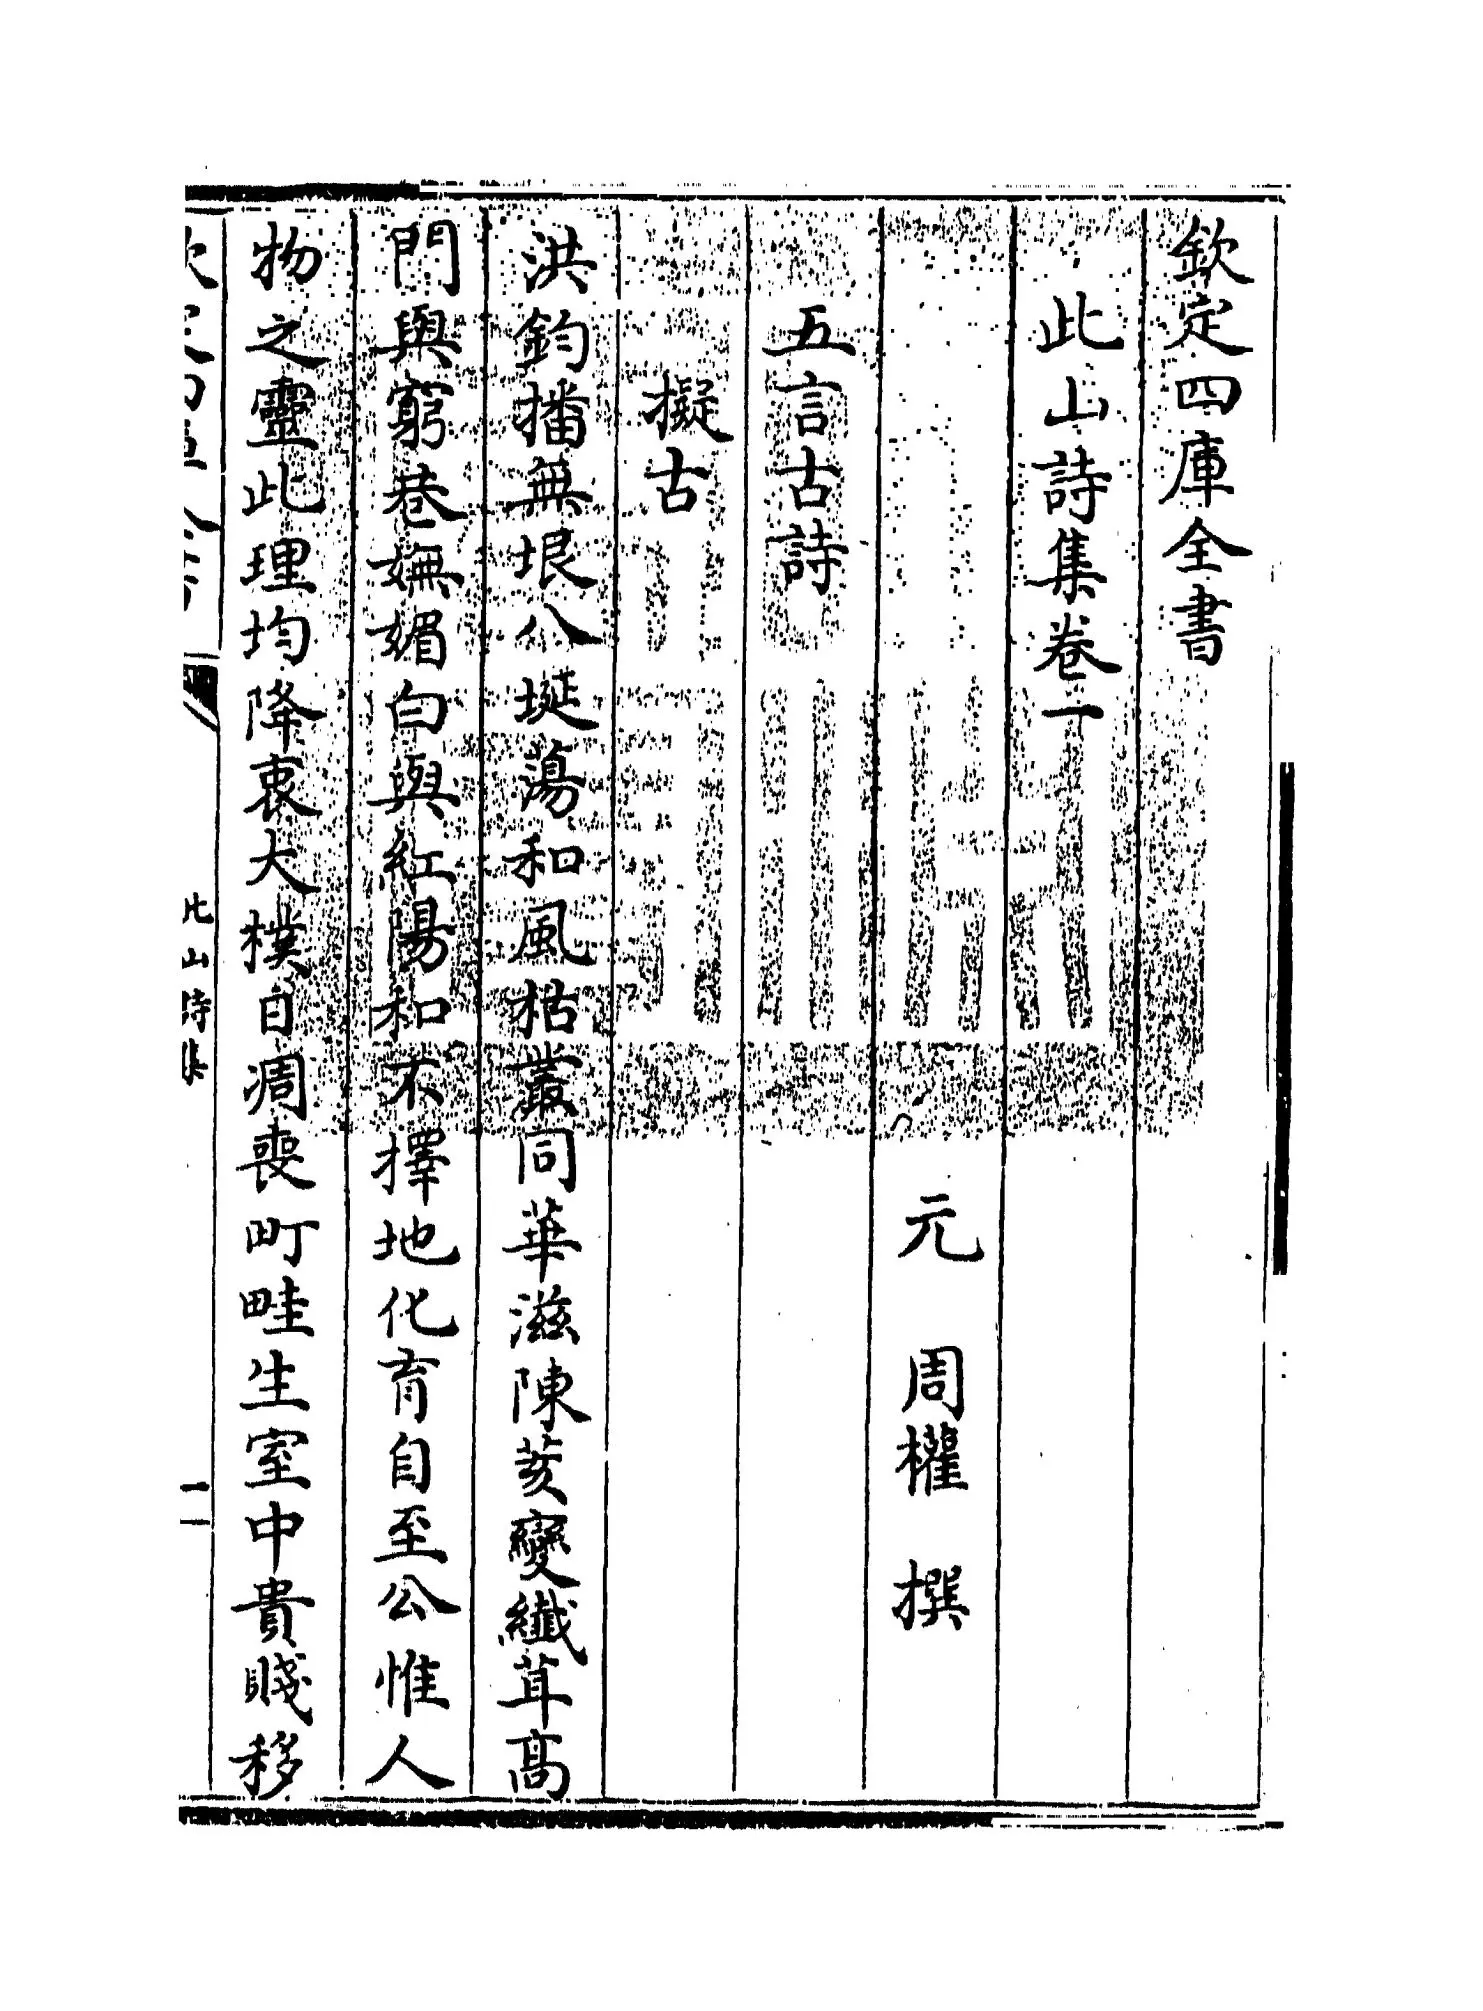 欽定四庫全書
此山詩集卷一
元　周權　撰
五言古詩
擬古
洪鈞播無垠八埏蕩和風枯叢同華滋陳荄變纖茸高
門與窮巷嫵媚白與紅陽和不擇地化育自至公惟人
物之靈此理均降衷大樸日凋喪町畦生室中貴賤移
此山詩集